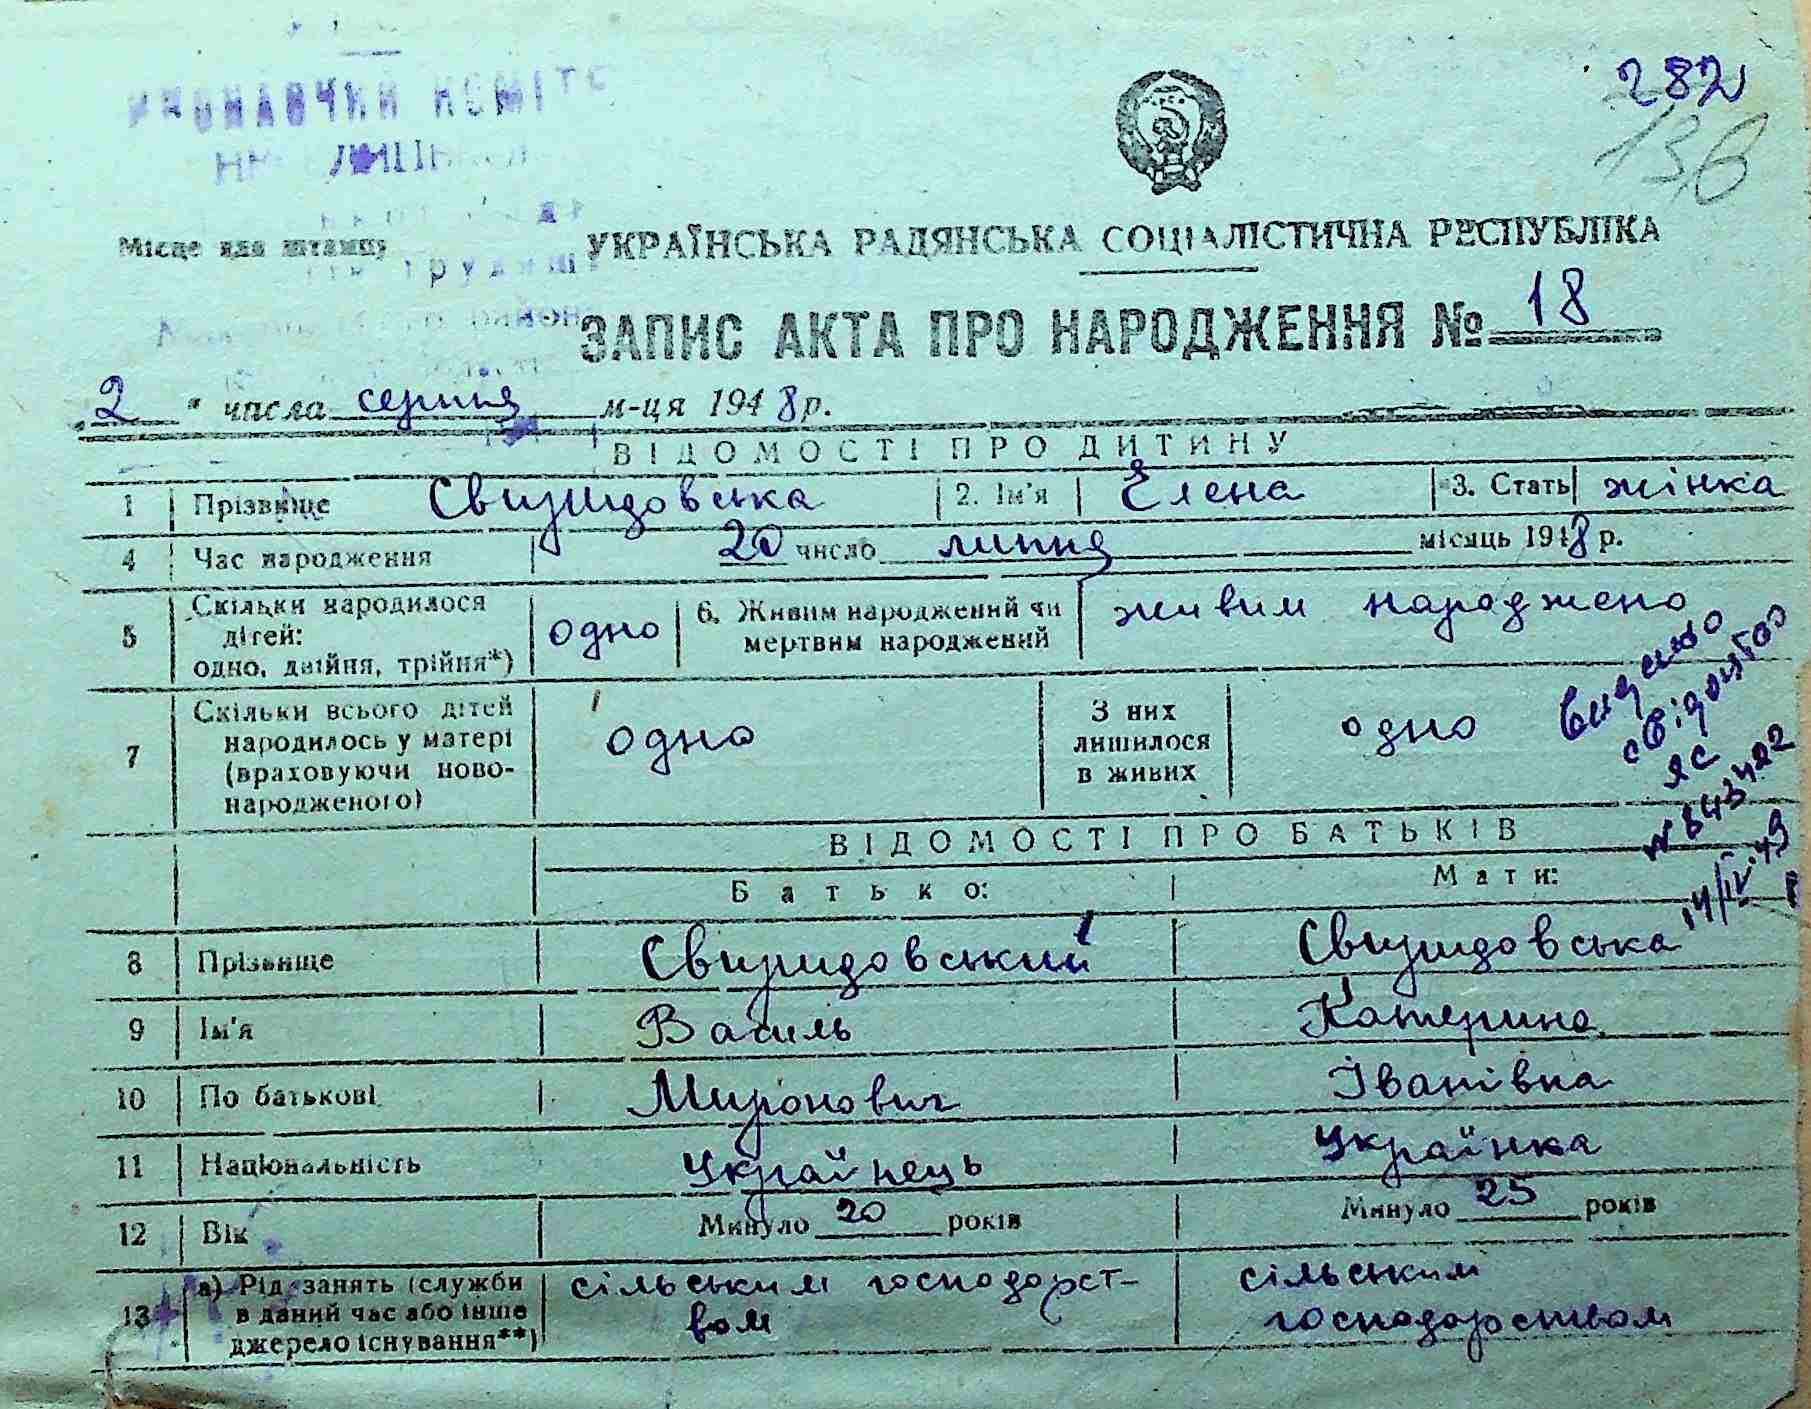 282
138
УКРАЇНСЬКА РАДЯНСЬКА СОЦІАЛІСТИЧНА РЕСПУБЛІКА
Місце для штампу
ЗАПИС АКТА ПРО НАРОДЖЕННЯ № 18
2 " числа серпня м-ця 1948 р.
ВІДОМОСТІ ПРО ДИТИНУ
1 Прізвище Свиридовська 2. Ім'я Єлена 3. Стать жінка
4 Час народження 20 число липня місяць 1948 р.
5 Скільки народилося дітей: одно, двійня, трійня*) одно 6. Живим народжений чи мертвим народжений живим народжено
7 Скільки всього дітей народилось у матері (враховуючи новонародженого) одно З них лишилося в живих одно
Видано
свідоцтво
ЯС
14/IV 49
ВІДОМОСТІ ПРО БАТЬКІВ
Батько: Мати:
8 Прізвище Свиридовський Свиридовська
9 Ім'я Василь Катерина
10 По батькові Миронович Іванівна
11 Національність Українець Українка
12 Вік Минуло 20 років Минуло 25 років
13 а) Рід занять (служби в даний час або інше джерело існування**) сільським господарством сільським господарством